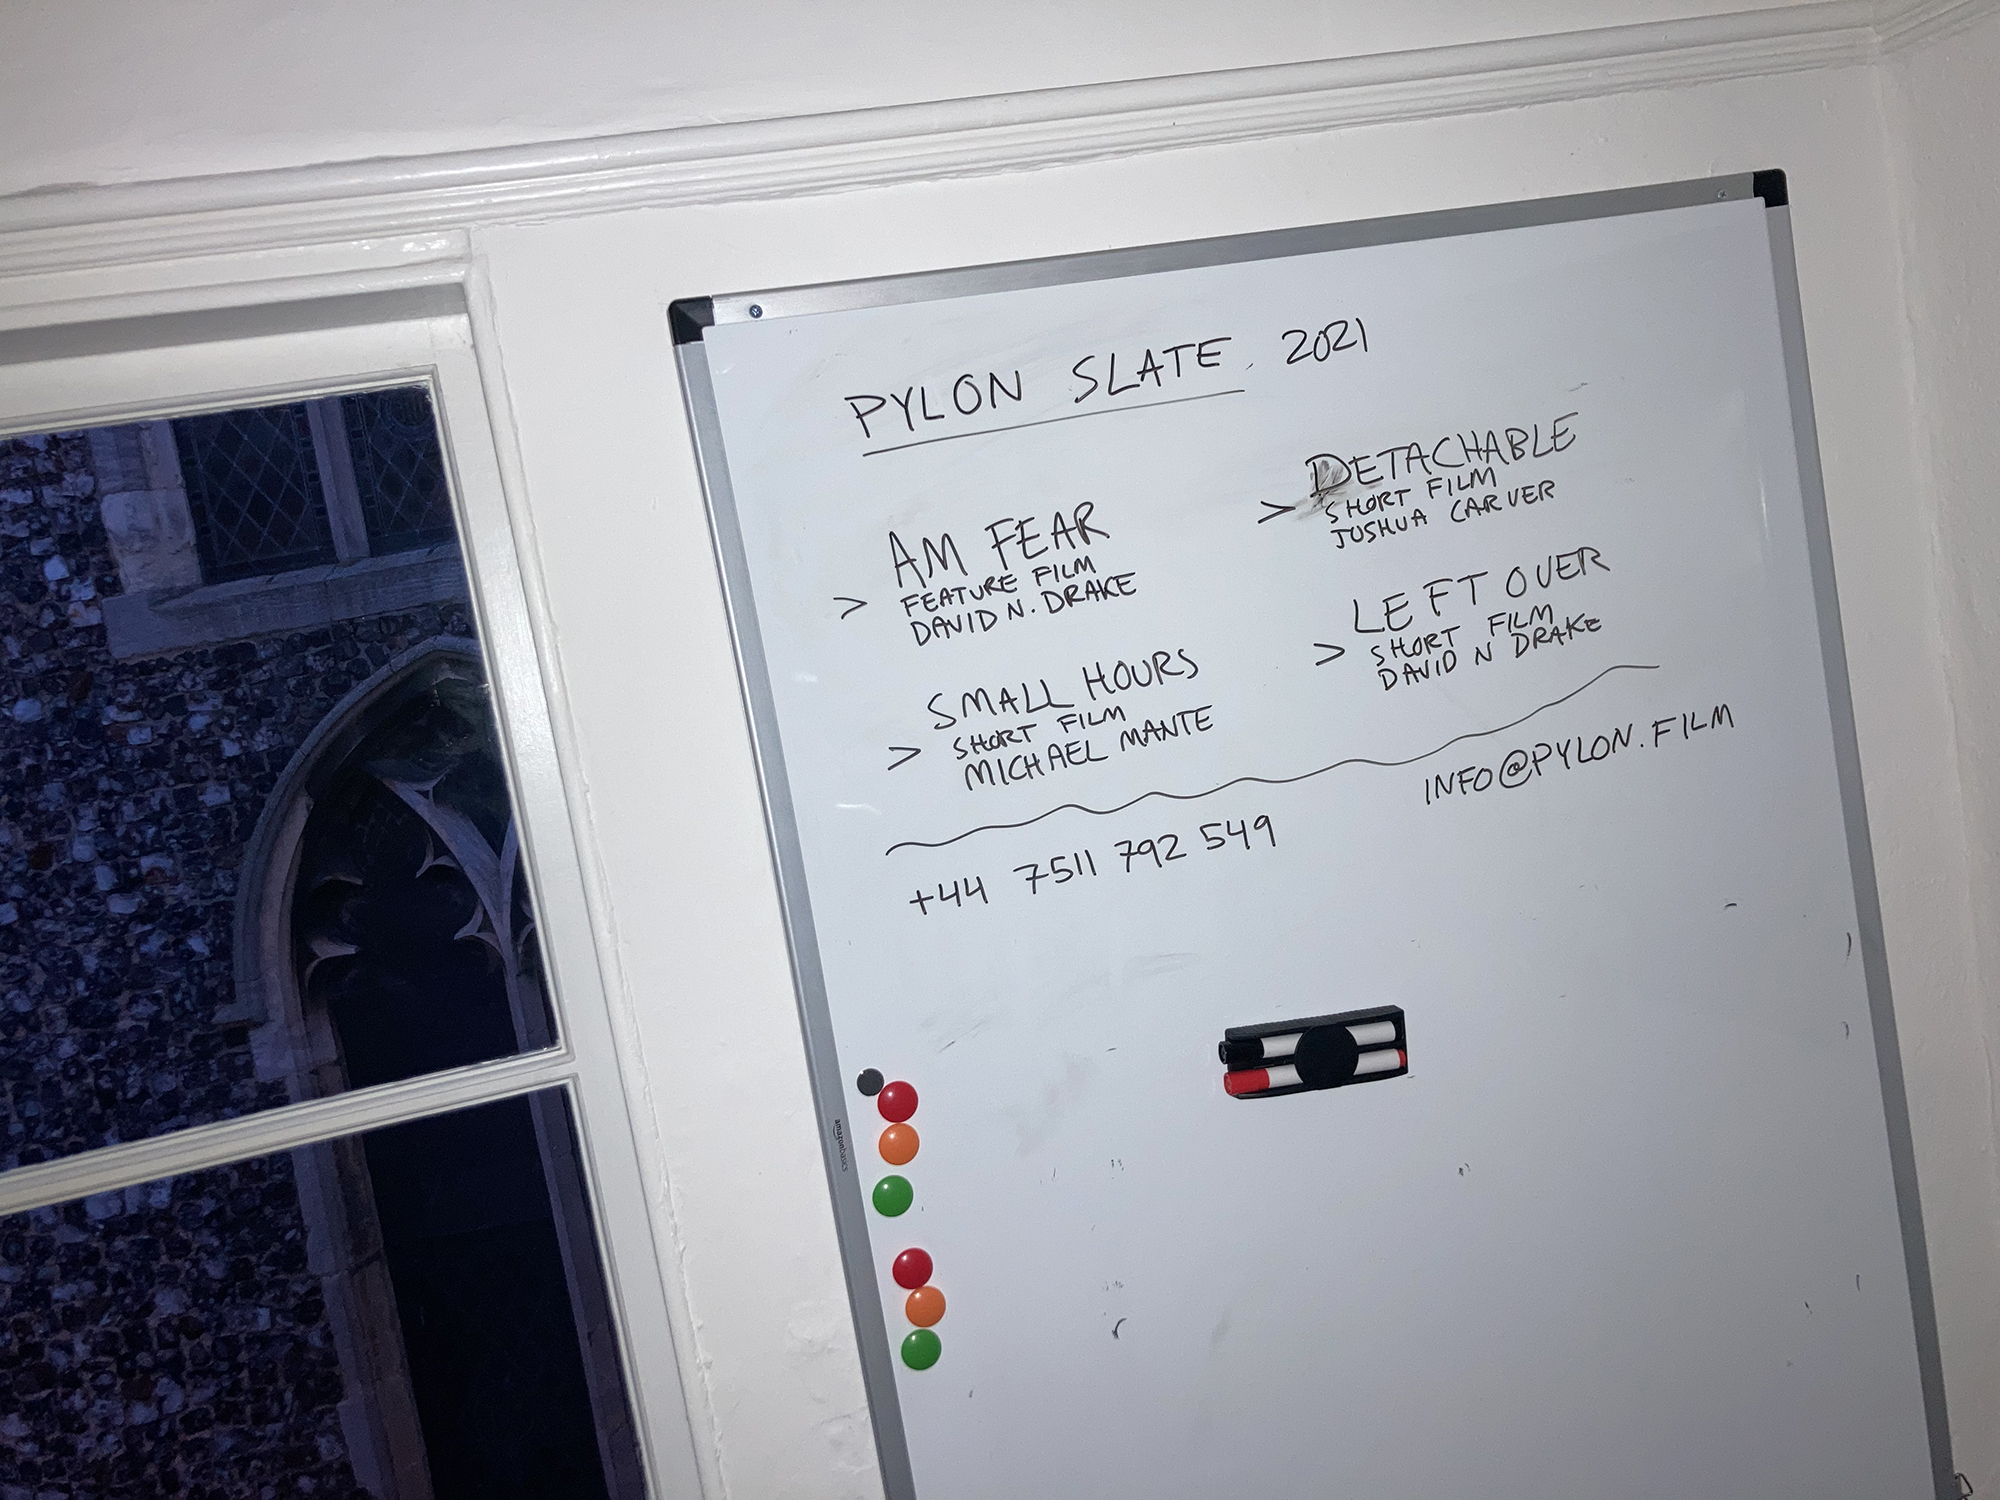 PYLON SLATE 2021
AM FEAR
> FEATURE FILM
DAVID N. DRAKE
SMALL HOURS
> SHORT FILM
MICHAEL MANTE
DETACHABLE
> SHORT FILM
JOSHUA CARVER
LEFT OVER
> SHORT FILM
DAVID N DRAKE
+44 7511 792 549
INFO@PYLON.FILM
amazonbasics